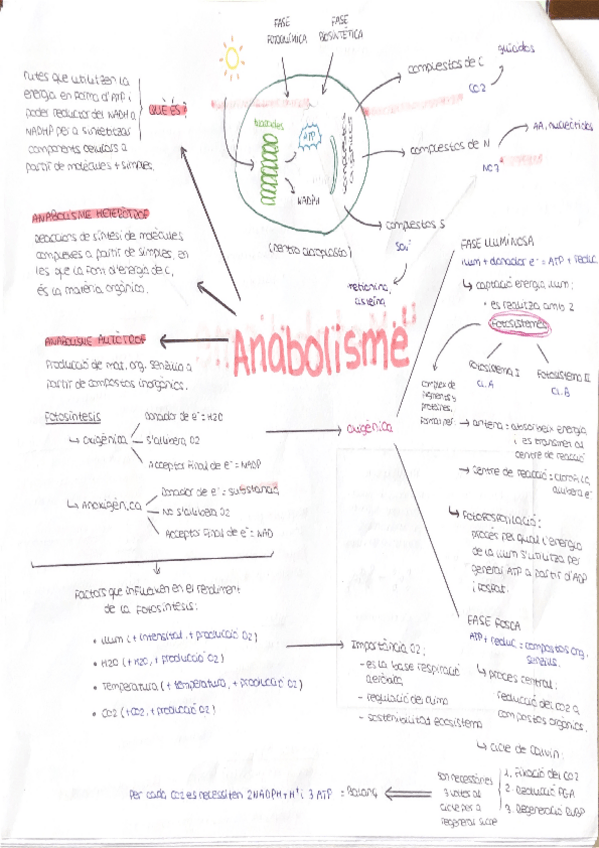 FASE
FOTOQUÍMICA
FASE
BIOSINTÈTICA
Rutes que utilitzen la
energia en forma d'ATP i
poder reductor del NADH o
NADHP per a sintetitzar
components cel·lulars a
partir de molècules + simples.
QUÈ ÉS?
tilacoides
ATP
NADPH
compostos orgànics
(Dentro cloroplasto)
compuestos de C
CO2
glúcidos
compuestos de N
NO3
AA, nucleótidos
compuestos S
SO4
metionina,
cisteïna
ANABOLISME HETERÒTROF
Reaccions de síntesi de molècules
complexes a partir de simples, en
les que la font d'energia de C,
és la matèria orgànica.
ANABOLISME AUTÒTROF
Producció de mat. org. senzilla a
partir de compostos inorgànics.
"Anabolisme"
Fotosíntesis
↳ Oxigènica
Donador de e⁻: H2O
S'allibera O2
Acceptor final de e⁻: NADP
↳ Anoxigènica
Donador de e⁻: substància
No s'allibera O2
Acceptor final de e⁻: NAD
Oxigènica
Factors que influeixen en el rendiment
de la fotosíntesis:
• Llum (+ intensitat, + producció O2)
• H2O (+ H2O, + producció O2)
• Temperatura (+ temperatura, + producció O2)
• CO2 (+CO2, + producció O2)
Importància O2:
- es la base respiració
aeròbica
- regulació del clima
- sostenibilitad ecosistema
FASE LLUMINOSA
llum + donador e⁻ = ATP + reduc.
↳ captació energia llum:
• es realitza amb 2
Fotosistemes
Fotosistema I
CL.A
Fotosistema II
CL.B
complex de
pigments y
proteïnes,
format per:
→ antena: absorbeix energia
i es transmet al
centre de reacció
→ centre de reacció: clorofil·la
allibera e⁻
↳ Fotofosforilació:
procés per qual l'energia
de la llum s'utilitza per
generar ATP a partir d'ADP
i fosfat.
FASE FOSCA
ATP + reduc = compostos org.
senzills.
↳ procés central:
reducció del CO2 a
compostos orgànics.
↳ cicle de Calvin:
1. Fixació del CO2
2. Reducció PGA
3. Regeneració RUBP
son necessàries
3 voltes al
cicle per a
regenerar
Per cada CO2 es necessiten 2NADPH+H⁺ i 3 ATP = Balanç